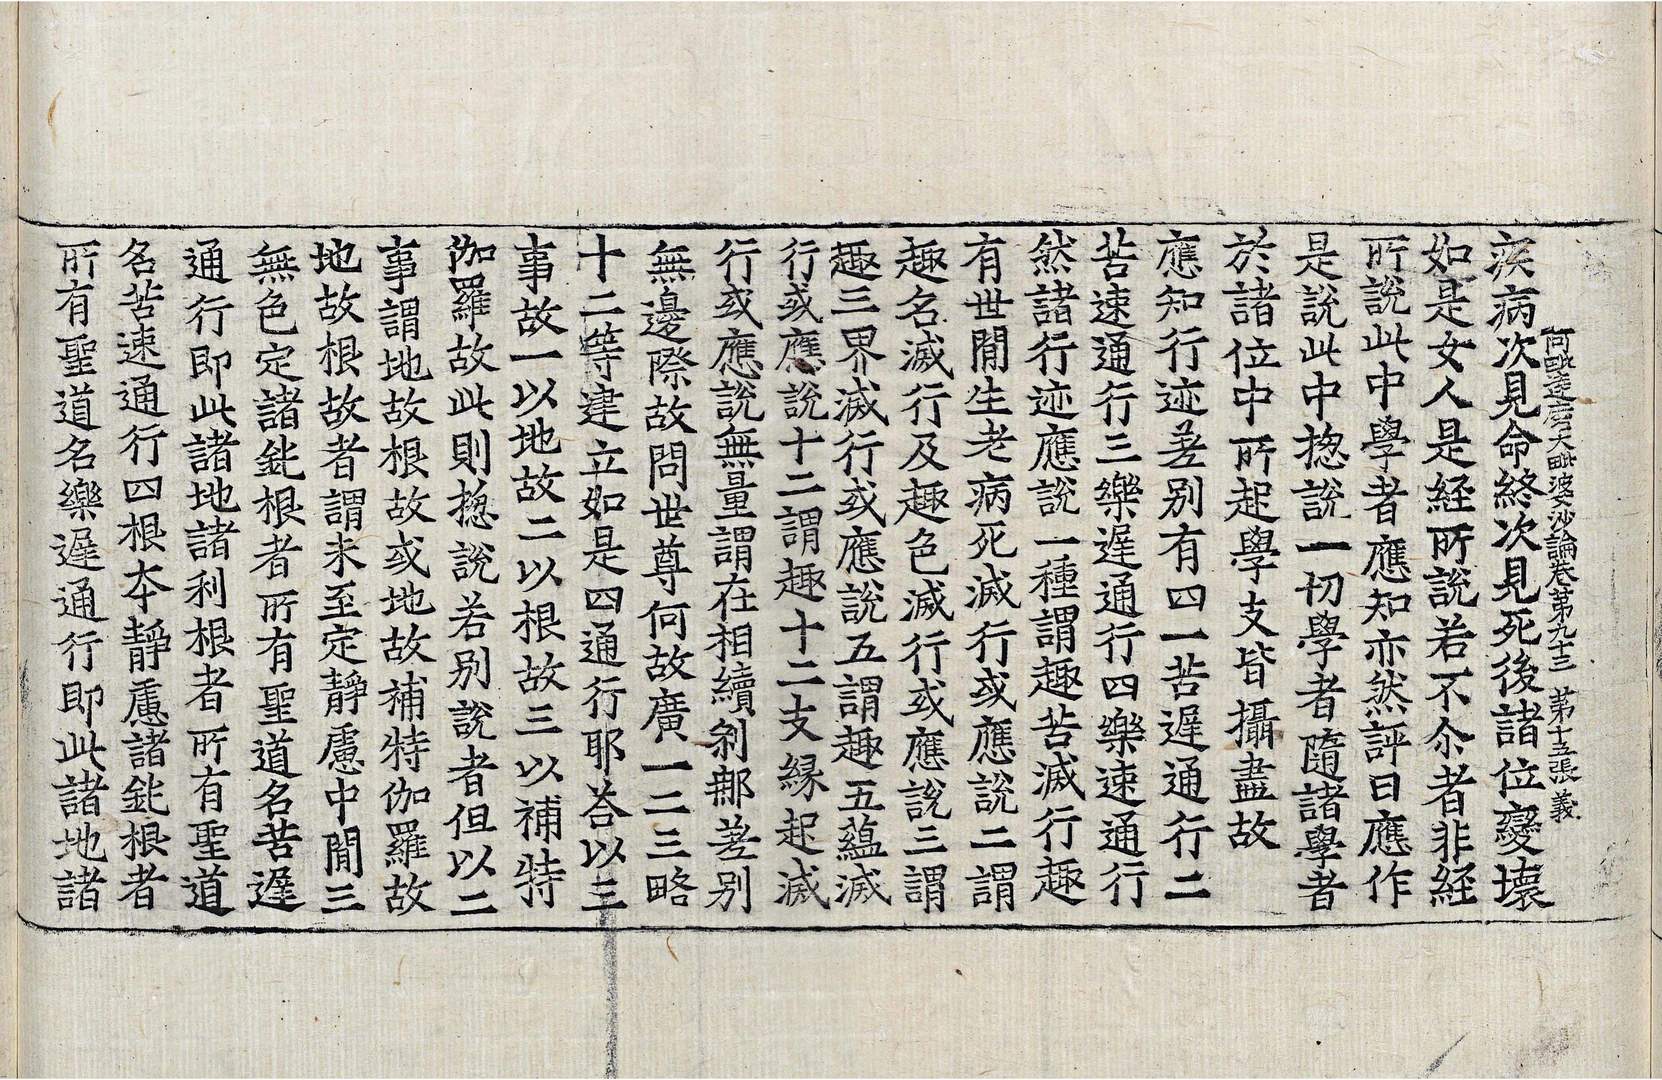 阿毗達磨大毗婆沙論卷第九十三　第十五張　義
疾病次見命終次見死後諸位變壞
如是女人是經所說若不尒者非經
所說此中學者應知亦然評曰應作
是說此中揔說一切學者隨諸學者
於諸位中所起學支皆攝盡故
應知行迹差別有四一苦遲通行二
苦速通行三樂遲通行四樂速通行
然諸行迹應說一種謂趣苦滅行趣
有世閒生老病死滅行或應說二謂
趣名滅行及趣色滅行或應說三謂
趣三界滅行或應說五謂趣五蘊滅
行或應說十二謂趣十二支緣起滅
行或應說無量謂在相續剎那差別
無邊際故問世尊何故廣一二三略
十二等建立如是四通行耶荅以三
事故一以地故二以根故三以補特
伽羅故此則揔說若別說者但以二
事謂地故根故或地故補特伽羅故
地故根故者謂未至定靜慮中閒三
無色定諸鈍根者所有聖道名苦遲
通行即此諸地諸利根者所有聖道
名苦速通行四根本靜慮諸鈍根者
所有聖道名樂遲通行即此諸地諸